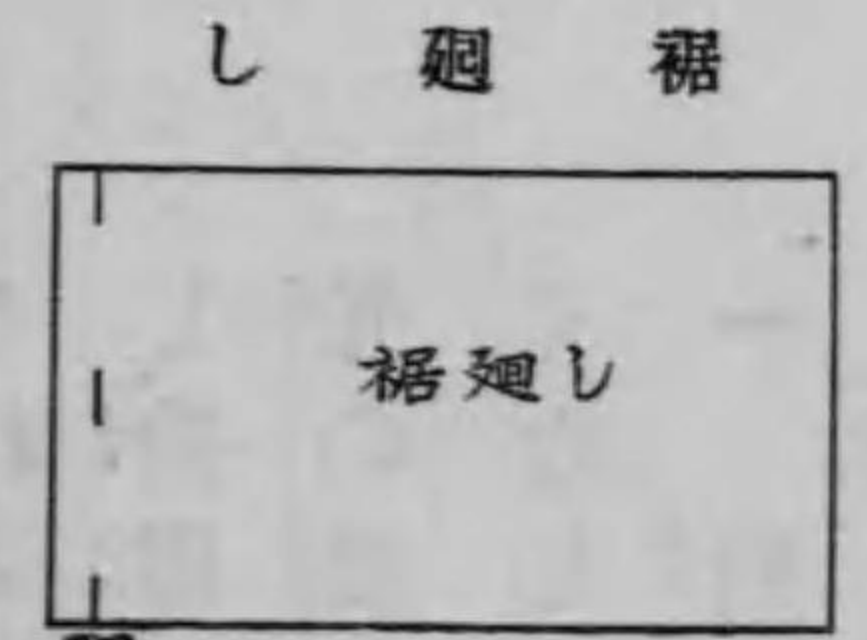 裾廻し
裾廻し